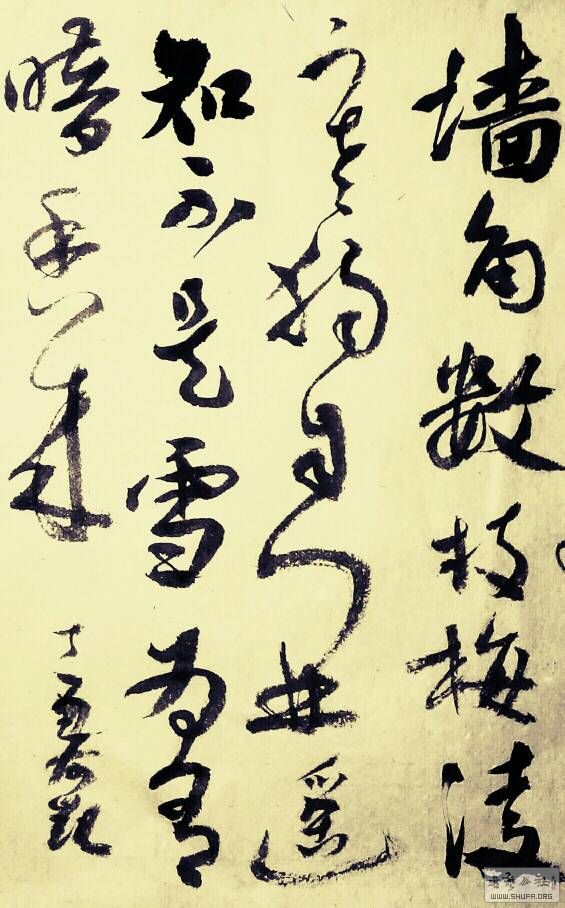 墙角数枝梅凌
寒独自開遥
知不是雪为有
暗香来
WWW.SHUFA.ORG